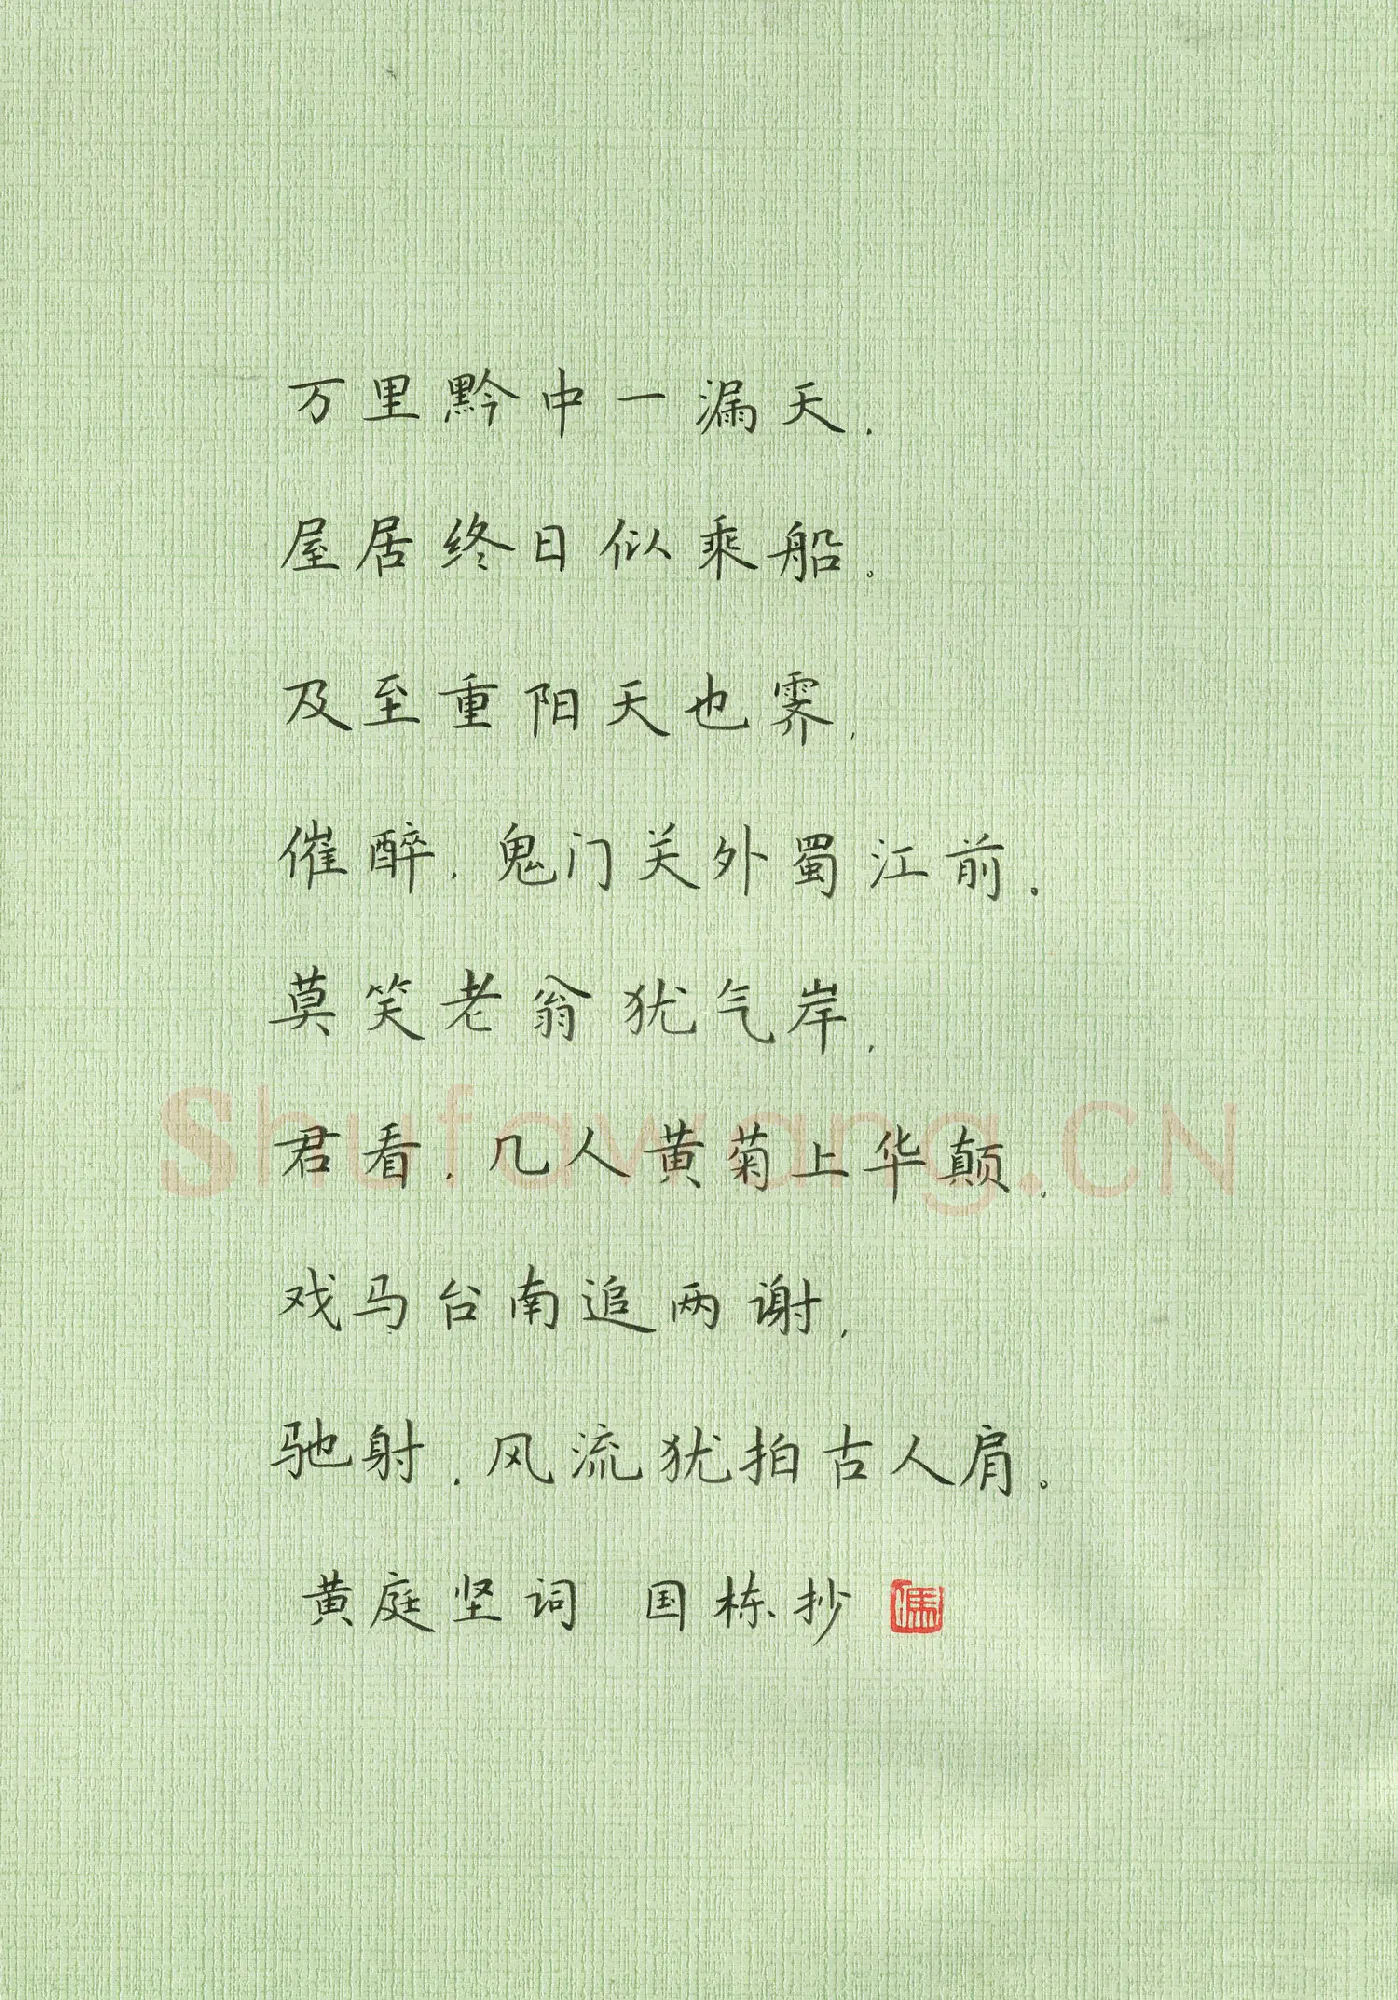 万里黔中一漏天，
屋居终日似乘船。
及至重阳天也霁，
催醉，鬼门关外蜀江前。
莫笑老翁犹气岸，
君看，几人黄菊上华颠，
戏马台南追两谢，
驰射，风流犹拍古人肩。
黄庭坚词 国栋抄
Shufawang.CN